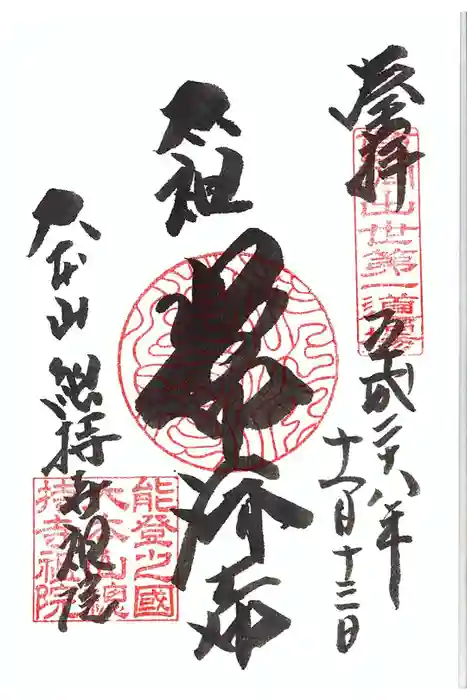 登拝
曹洞出世第一道場
平成二六年
十一月十三日
太祖
常済大師
大本山總持寺祖院
能登之國
大本山總
持寺祖院